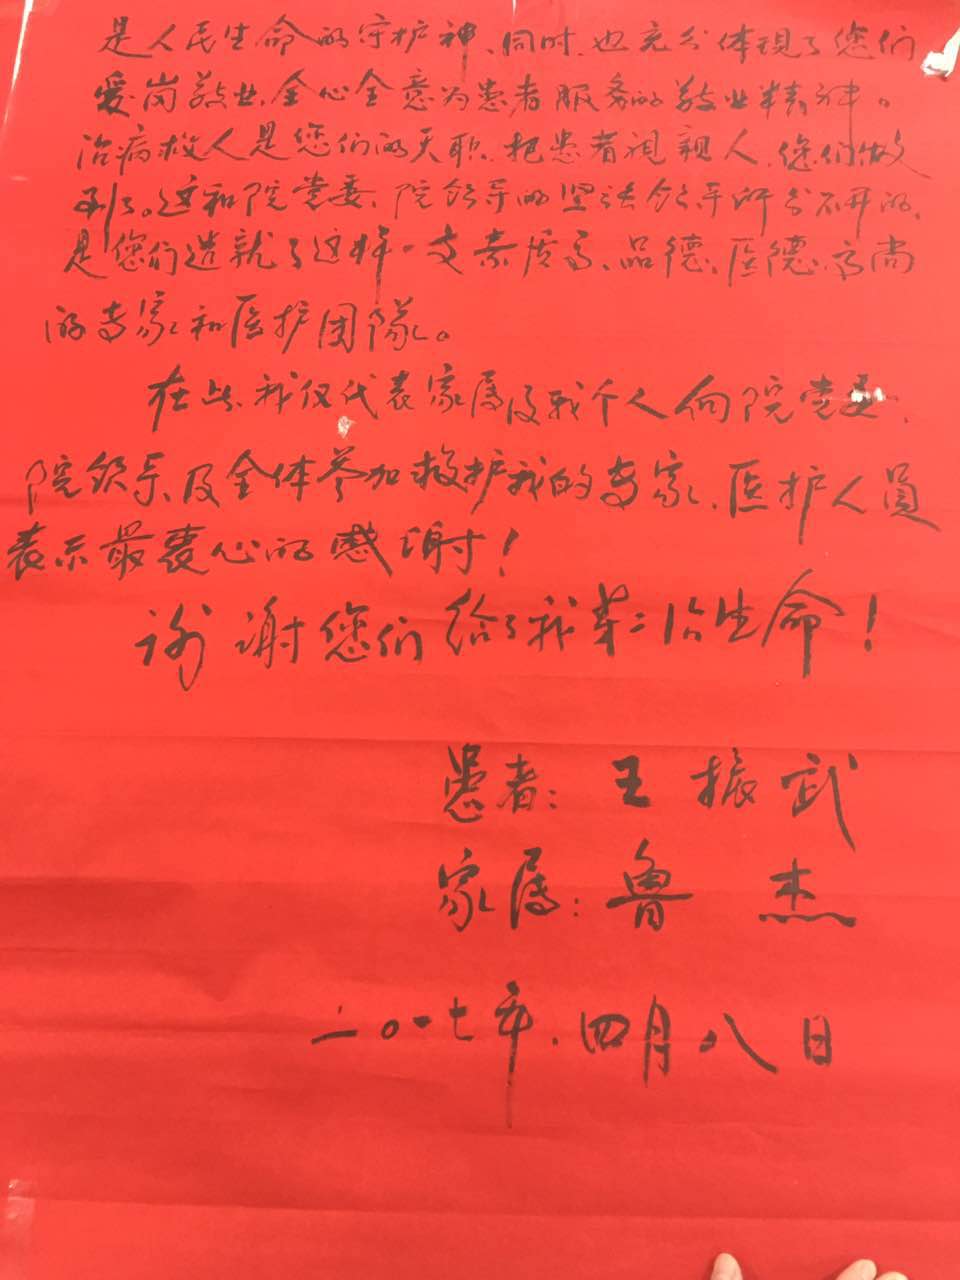 是人民生命的守护神、同时,也充分体现了您们
爱岗敬业、全心全意为患者服务的敬业精神。
治病救人是您们的天职,把患者视亲人,您们做
到了。这和院党委、院领导的坚强领导所分不开的,
是您们造就了这样一支素质高、品德、医德、高尚
的专家和医护团队。
在此我仅代表家属及我个人向院党委、
院领导、及全体参加救护我的专家、医护人员
表示最衷心的感谢!
谢谢您们给了我第二次生命!
患者:王振武
家属:鲁杰
二〇一七年.四月八日